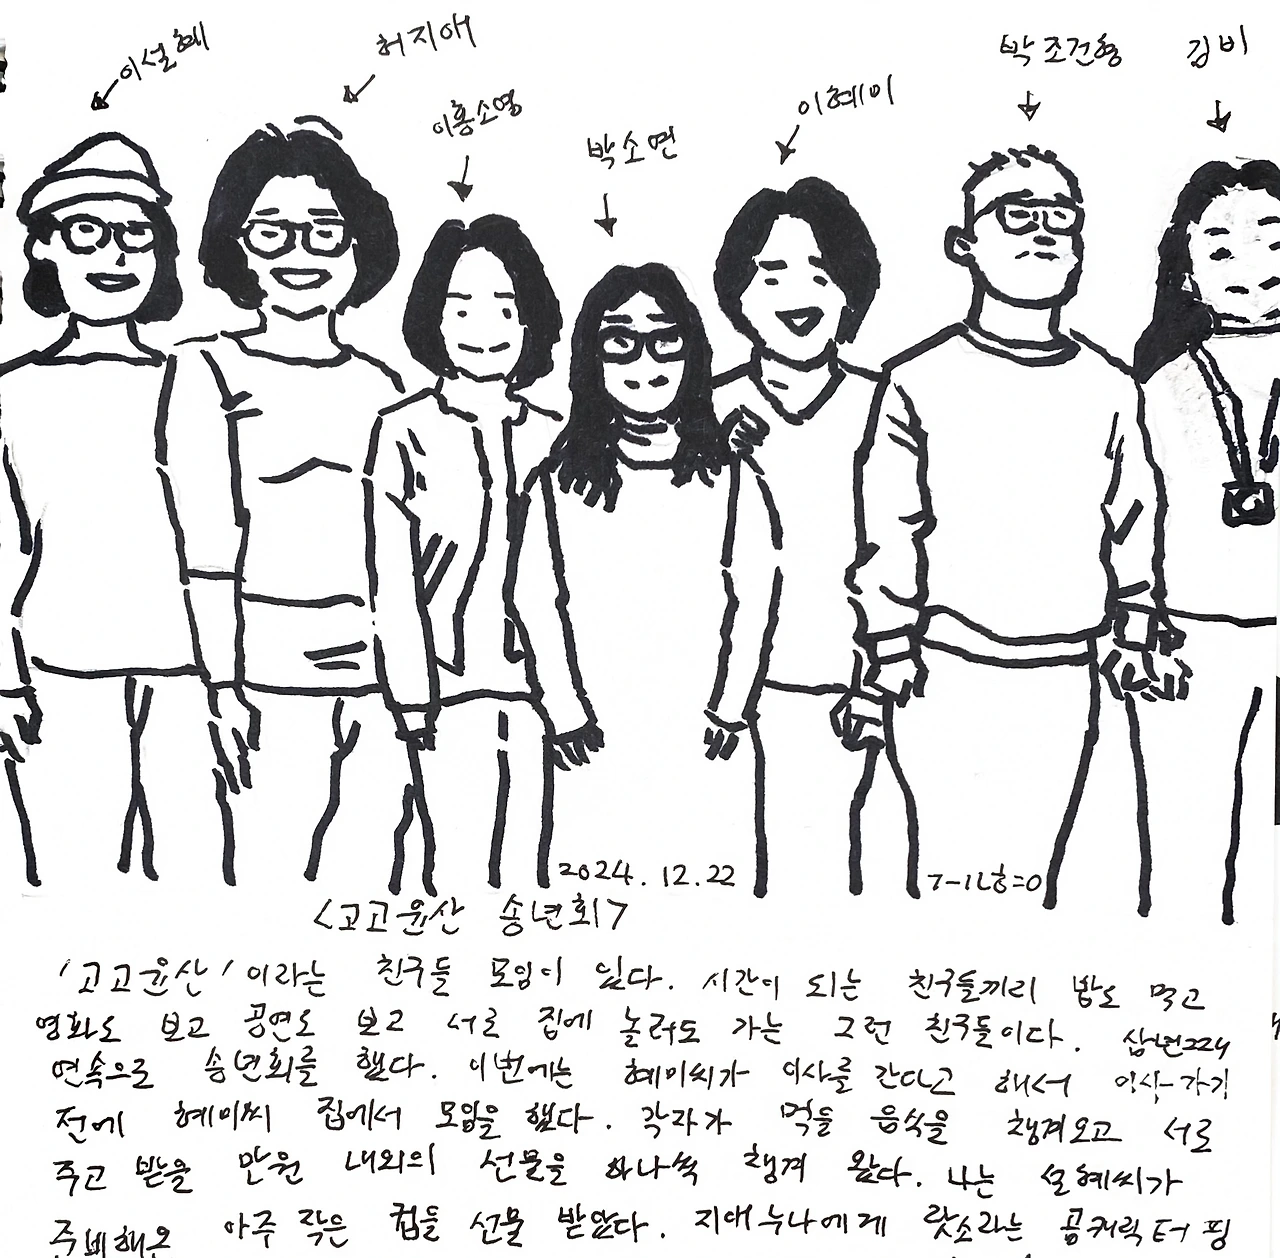 이설혜
허지애
이홍소영
박소연
이혜미
박조건형
김비
2024. 12. 22
<고고윤산 송년회>
'고고윤산'이라는 친구들 모임이 있다. 시간이 되는 친구들끼리 밥도 먹고
영화도 보고 공연도 보고 서로 집에 놀러도 가는 그런 친구들이다. 삼년째
연속으로 송년회를 했다. 이번에는 혜미씨가 이사를 간다고 해서 이사가기
전에 혜미씨 집에서 모임을 했다. 각자가 먹을 음식을 챙겨오고 서로
주고 받을 만원 내외의 선물을 하나씩 챙겨 왔다. 나는 설혜씨가
준비해온 아주 작은 컵을 선물 받았다. 지애누나에게 랏소라는 곰캐릭터 핑